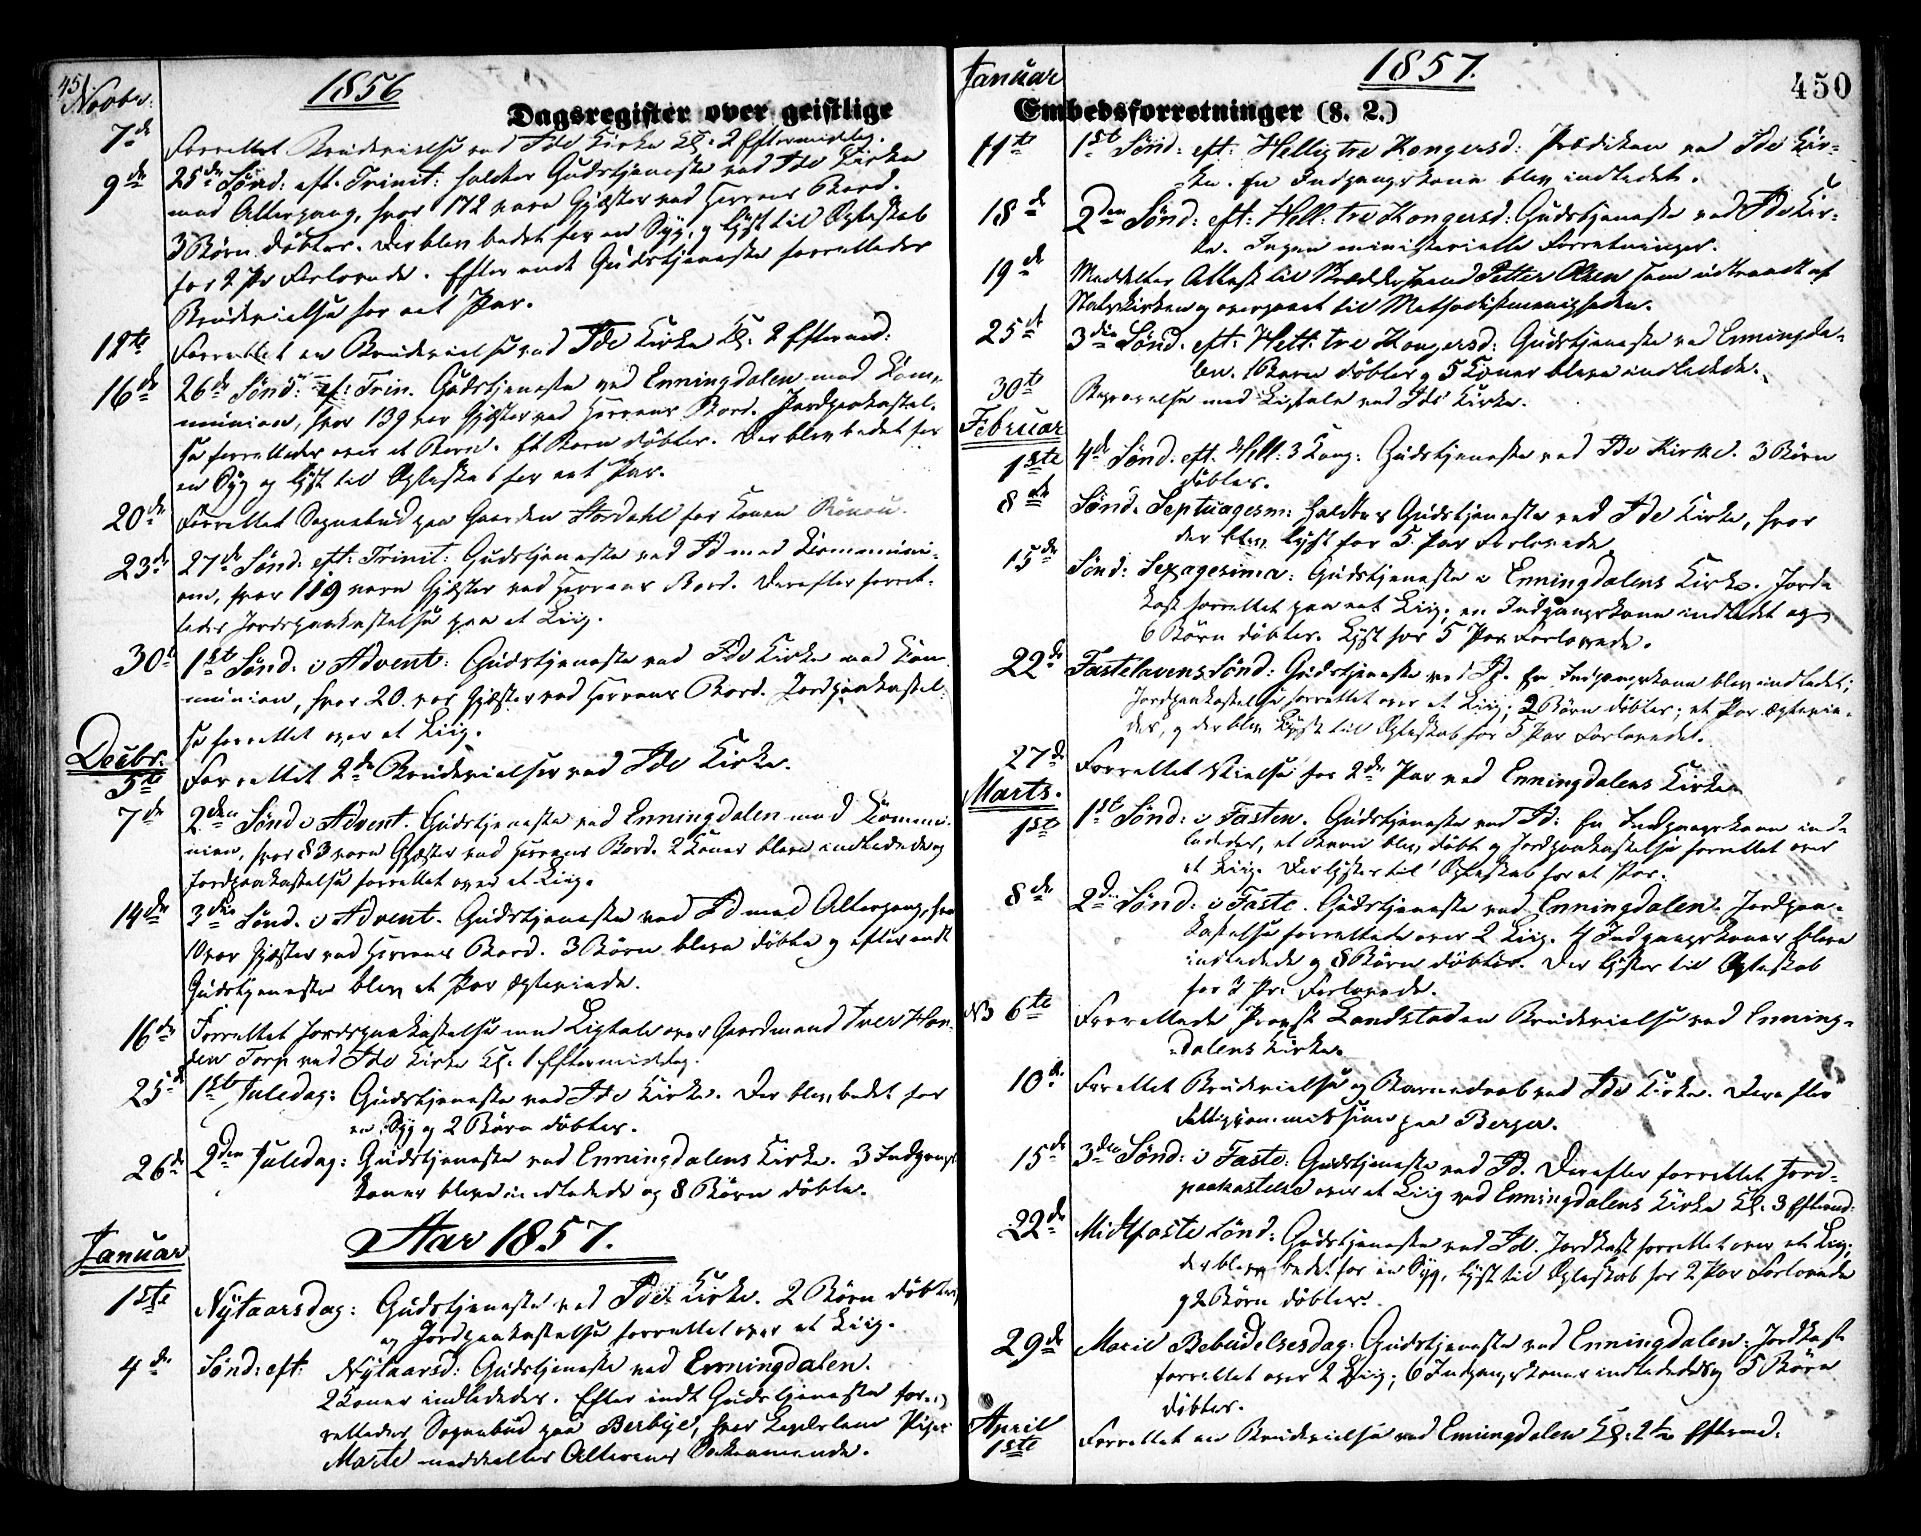 451
Novbr: 1856
Dagsregister over geistlige
7de Forrettet Brudevielse ved Ide Kirke Kl. 2 Eftermidg.
9de 25de Sønd: eft. Trinit: holdtes Gudstjeneste ved Ide Kirke
med Altergang, hvor 172 vare Gjæster ved Herrens Bord.
3 Børn døbtes. Der blev bedet for en Syg, og lyst til Ægteskab
for 2 Pr Forlovede. Efter endt Gudstjeneste forrettedes
Brudevielse for eet Par.
12te Forrettet en Brudevielse ved Ide Kirke Kl. 2 Eftermd:
16de 26de Sønd: ef: Trin. Gudstjeneste ved Enningdalen med Kom-
munion, hvor 139 var Gjæster ved Herrens Bord. Jordpaakastel-
se forrettedes over et Barn. Et Barn døbtes. Der blev bedet for
en Syg og lyst til Ægteskab for eet Par.
20de Forrettet Sognebud paa Gaarden Stordahl for Konen
23de 27de Sønd: eft: Trinit: Gudstjeneste ved Id med Kommuni-
on, hvor 119 vare Gjæster ved Herrens Bord. Derefter forret-
tedes Jordpaakastelse paa et Liig.
30te 1ste Sønd: i Advent: Gudstjeneste ved Ide Kirke med Kom
munion, hvor 20 var Gjæster ved Herrens Bord. Jordpaakastel-
se forrettet over et Liig.
Decbr.
5te Forrettet 2de Brudevielser ved Ide Kirke.
7de 2den Sønd i Advent. Gudstjeneste ved Enningdalen med Kommu-
nion, hvor 83 vare Gjæster ved Herrens Bord. 2 Koner bleve indledede og
Jordpaakastelse forrettet over et Liig.
14de 3die Sønd. i Advent. Gudstjeneste ved Id med Altergang, hvor
10 var Gjæster ved Herrens Bord. 3 Børn bleve døbte og efter endt
Gudstjeneste blev et Par ægteviede.
16de Forrettet Jordpaakastelse med Ligtale over Gaardmand Iver
Torp ved Ide Kirke Kl. 1 Eftermiddag.
25de 1ste Juledag: Gudstjeneste ved Ide Kirke. Der blev bedet for
en Syg og 2 Børn døbtes.
26de 2den Juledag: Gudstjeneste ved Enningdalens Kirke. 3 Indgangs-
koner bleve indledede og 8 Børn døbte.
Aar 1857.
Januar
1ste Nytaarsdag: Gudstjeneste ved Ide Kirke. 2 Børn døbtes,
og Jordpaakastelse forrettet over et Liig.
4de Sønd: eft: Nytaarsd: Gudstjeneste ved Enningdalen.
2 Koner indlededes. Efter endt Gudstjeneste for-
rettedes Sognebud paa Berbye, hvor Pige
Marte meddeeltes Alterens Sakramente.
Januar 1857. 450
Embedsforretninger (§. 2.)
11te 1ste Sønd: eft: Hellig tre Kongersd: Prædiken ved Ide Kir-
ke. En Indgangskone blev indledet.
18de 2den Sønd: eft: Hell: tre Kongersd: Gudstjeneste ved Ide Kir-
ke. Ingen ministerielle Forretninger.
19de Meddeltes Attest til Skræddersvend Petter Olsen som udtraadt af
Statskirken og overgaaet til Methodistmenigheden.
25de 3die Sønd. eft: Hell: tre Kongersd: Gudstjeneste ved Enningda-
len. 6 Børn døbtes og 5 Koner bleve indledede.
30te Begravelse med Ligtale ved Ids Kirke.
Februar
1ste 4de Sønd. eft. Hell: 3 Kong: Gudstjeneste ved Ide Kirke. 3 Børn
døbtes.
8de Sønd. Septuagesm: holdtes Gudstjeneste ved Ide Kirke, hvor
der blev lyst for 5 Par Forlovede
15de Sønd: Sexagesima: Gudstjeneste i Enningdalens Kirke. Jords
kast forrettet paa eet Liig; en Indgangskone indledet og
6 Børn døbtes. Lyst for 5 Par Forlovede.
22de Fastelavens Sønd: Gudstjeneste ved Id. En Indgangskone blev indledet;
Jordpaakastelse forrettet over et Liig; 2 Børn døbtes; et Par ægtevie-
des, og der blev Lyst til Ægteskab for 5 Par Forlovede.
27de Forrettet Vielse for 2de Par ved Enningdalens Kirke
Marts.
1ste 1ste Sønd: i Fasten. Gudstjeneste ved Id: En Indgangskone ind-
lededes, et Barn blev døbt og Jordpaakastelse forrettet over
et Liig. Der lystes til Ægteskab for et Par.
8de 2den Sønd: i Faste. Gudstjeneste ved Enningdalen. Jordpaa-
kastelse forrettedes over 2 Liig. 4 Indgangskoner bleve
indledede og 8 Børn døbtes. Der lystes til Ægteskab
for 2 Pr: Forlovede.
NB 6te Forrettede Provst Landstad en Brudevielse ved Enning-
dalens Kirke.
10de Forrettet Brudevielse og Barnedaab ved Ide Kirke. Derefter
Fattigkommission paa Berger.
15de 3die Sønd: i Faste: Gudstjeneste ved Id. Derefter forrettet Jord-
paakastelse over et Liig ved Enningdalens Kirke Kl. 3 Eftermd:
22de Midtfaste Sønd: Gudstjeneste ved Ide. Jordkast forrettet over et Liig;
der blev bedet for en Syg, lyst til Ægteskab for 2 Par Forlovede
og 2 Børn døbtes.
29de Marie Bebudelsesdag: Gudstjeneste ved Enningdalen: Jordkast
forrettet over 2 Liig; 6 Indgangskoner indlededes og 5 Børn
døbtes.
April
1ste Forrettet en Brudevielse ved Enningdalen Kl. 2½ Eftermd.